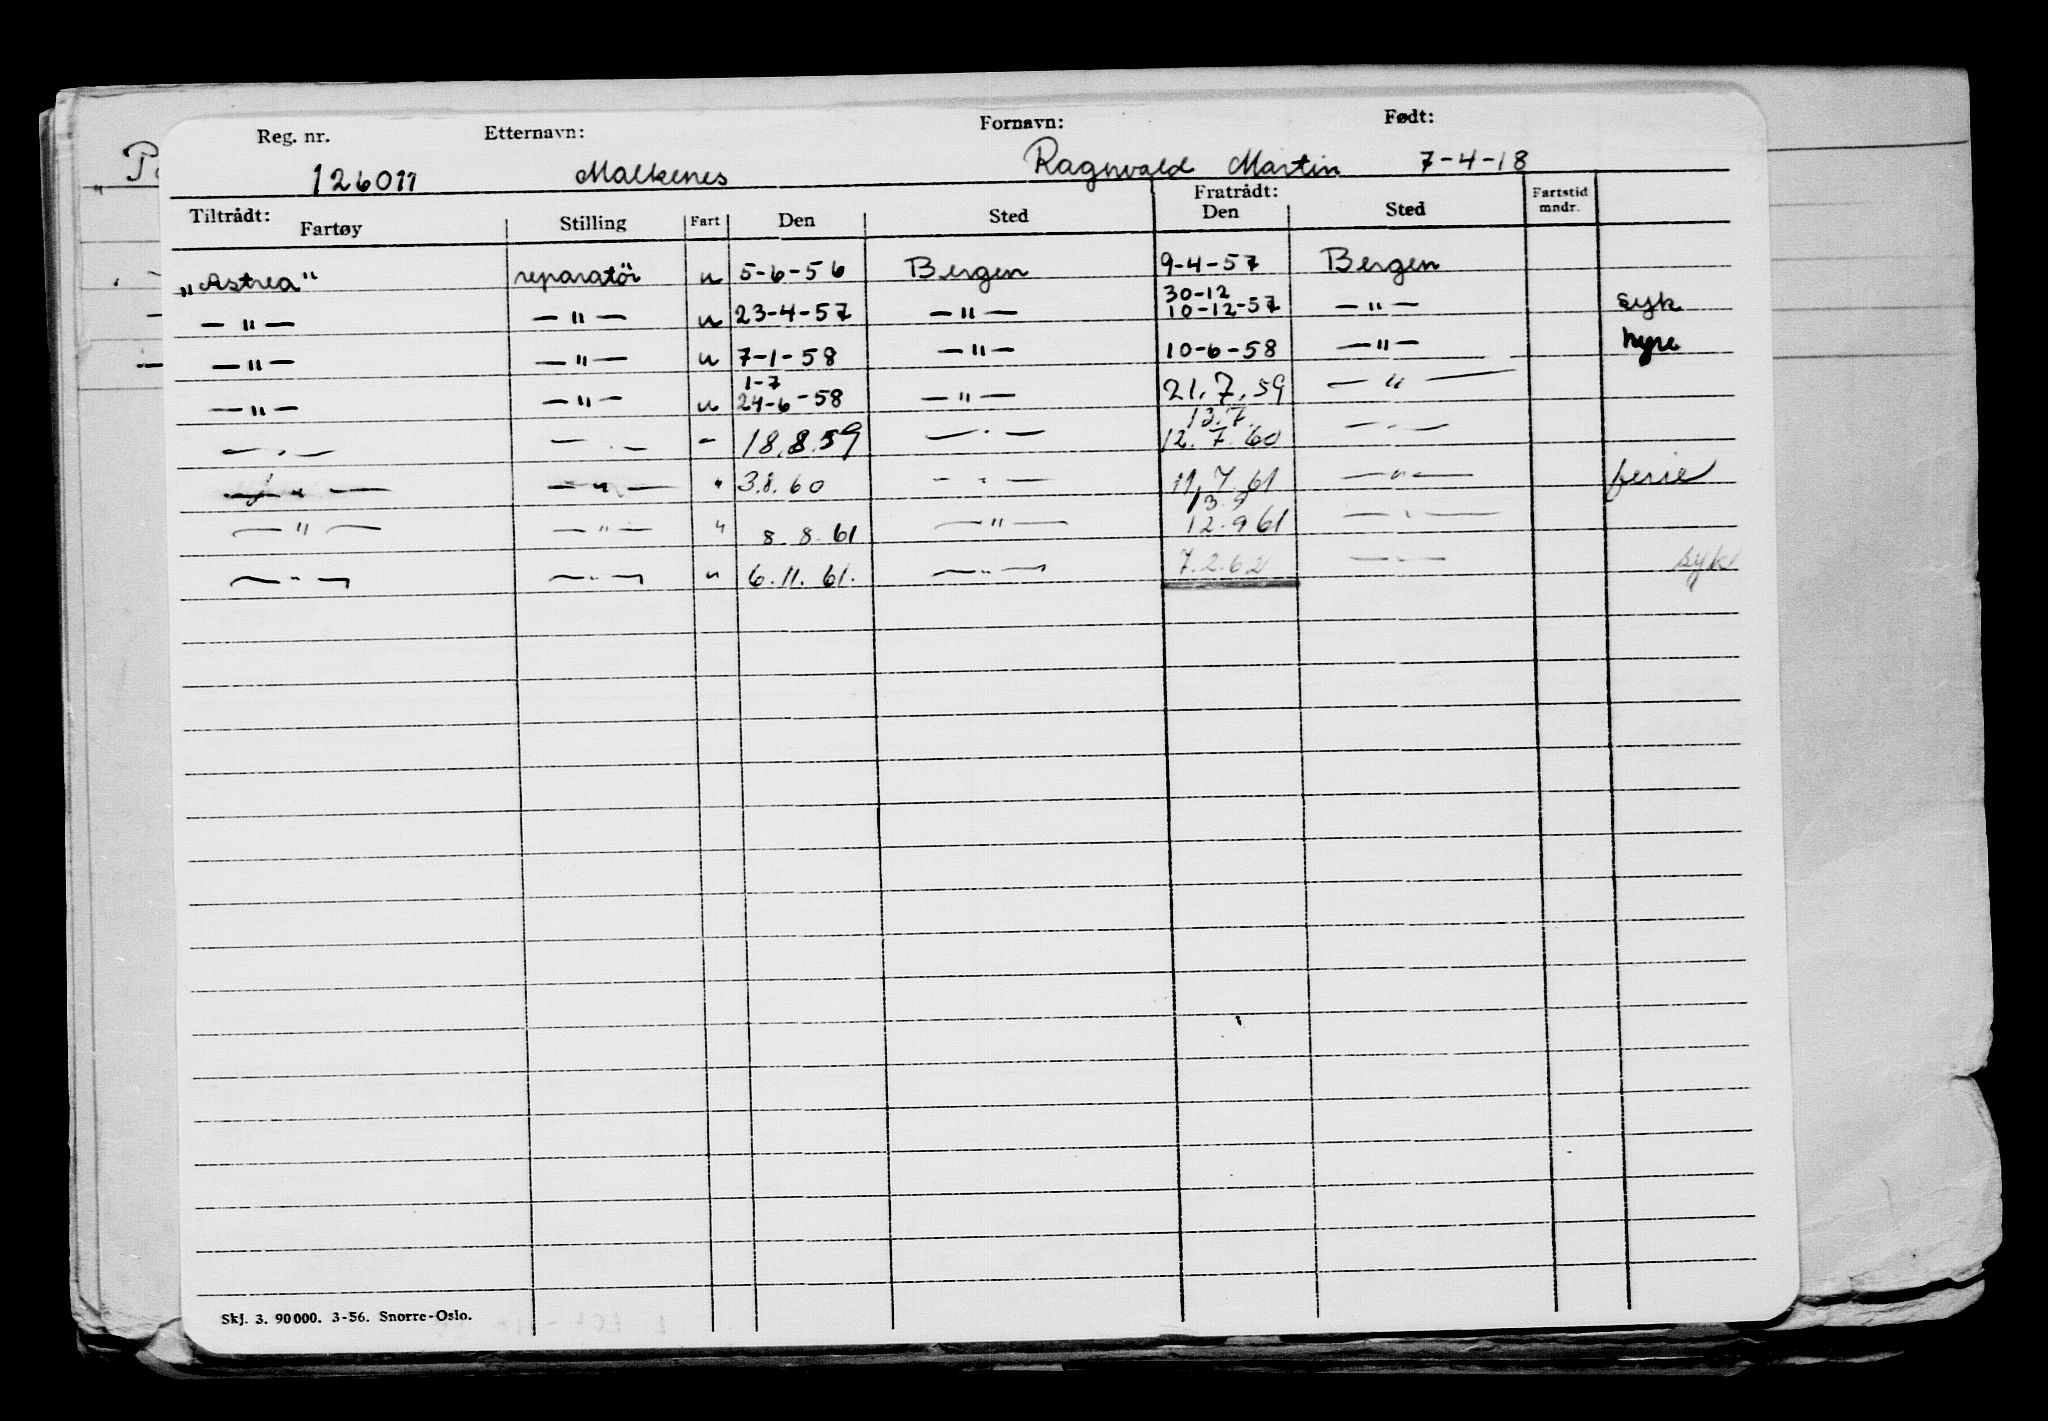 Reg. nr. Etternavn: Fornavn: Født:
126011 Malkenes Ragnvald Martin 7-4-18
Tiltrådt: Fratrådt:
Fartøy Stilling Fart Den Sted Den Sted Fartstid mndr.
"Astrea" reparatör u 5-6-56 Bergen 9-4-57 Bergen
30-12
— " — — " — u 23-4-57 — " — 10-12-57 — " — syk
— " — — " — u 7-1-58 — " — 10-6-58 — " — hyre
1-7
— " — — " — u 24-6-58 — " — 21.7.59 — " —
13.7.
— . — — . — - 18.8.59 — . — 12.7.60 — . —
— " — — " — " 3.8.60 — . — 11.7.61 — " — ferie
13.9
— " — — " — " 8.8.61 — " — 12.9.61 — . —
— " — — " — " 6.11.61. — " — 7.2.62 — . — syk
Skj. 3. 90000. 3-56. Snorre-Oslo.